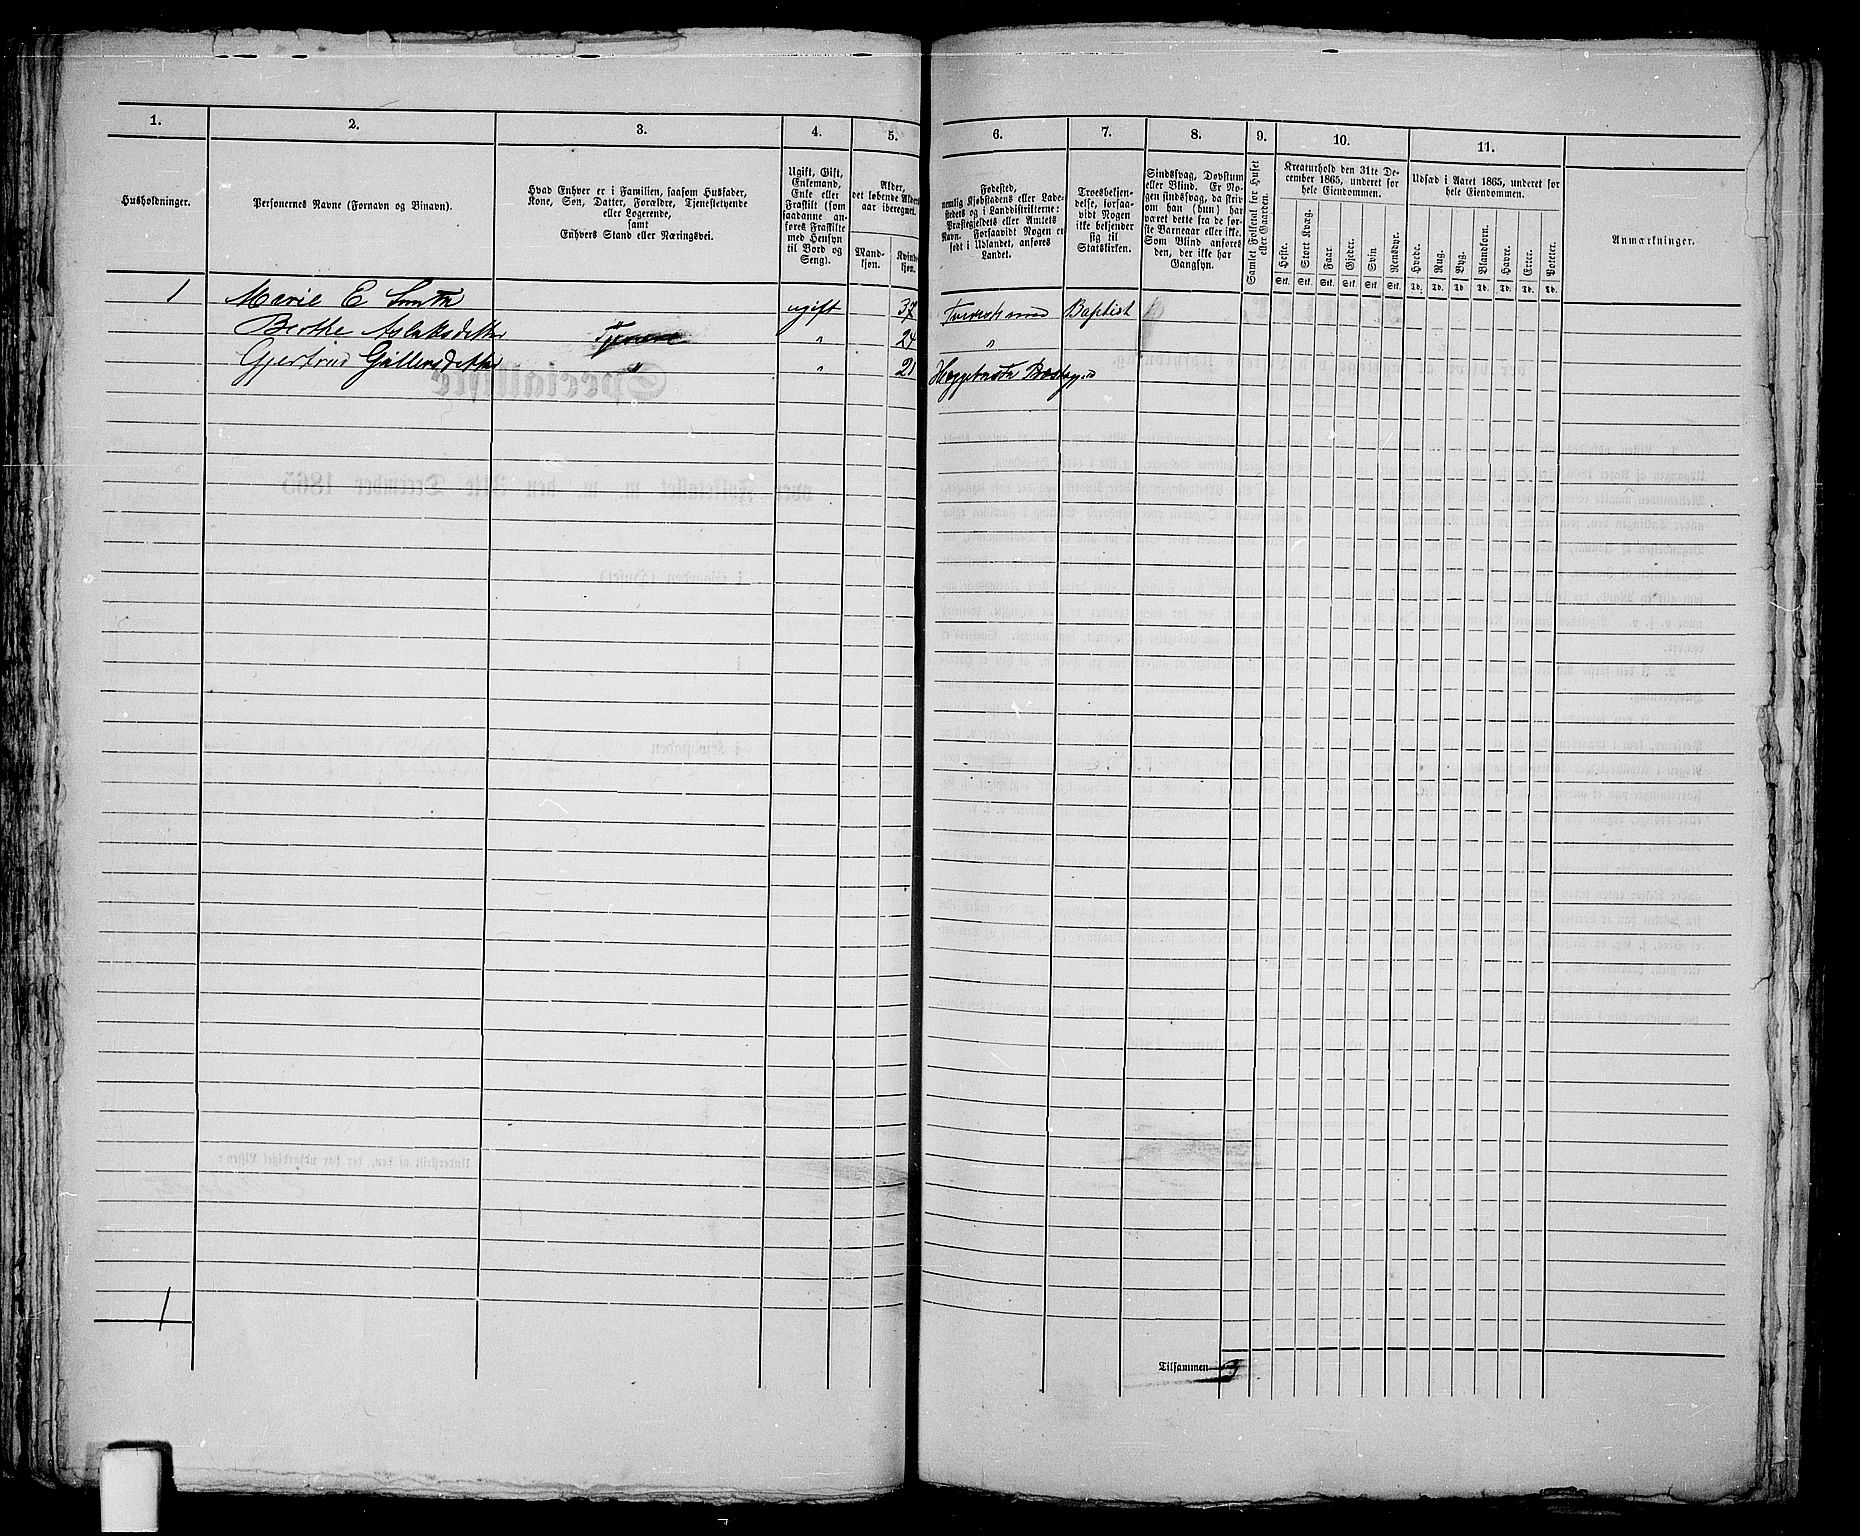 1. 2. 3. 4. 5. 6. 7. 8. 9. 10. 11.
Husholdninger.
Personernes Navne (Fornavn og Binavn).
Hvad Enhver er i Familien, saasom Husfader,
Kone, Søn, Datter, Forældre, Tjenestetyende
eller Logerende,
samt
Enhvers Stand eller Næringsvei.
Ugift, Gift,
Enkemand,
Enke eller
Fraskilt (som
saadanne an-
føres Fraskilte
med Hensyn
til Bord og
Seng).
Alder,
det løbende Alders-
aar iberegnet.
Mand-
kjøn.
Kvinde-
kjøn.
Fødested,
nemlig Kjøbstadens eller Lade-
stedets og i Landdistrikterne:
Præstegjeldets eller Amtets
Navn. Forsaavidt Nogen er
født i Udlandet, anføres
Landet.
Troesbekjen-
delse, forsaa-
vidt Nogen
ikke bekjender
sig til
Statskirken.
Sindssvag, Døvstum
eller Blind. Er No-
gen sindssvag, da skriv
om han (hun) har
været dette fra de før-
ste Barneaar eller ikke.
Som Blind anføres
den, der ikke har
Gangsyn.
Samlet Folketal for Huset
eller Gaarden.
Kreaturhold den 31te De-
cember 1865, underet for
hele Eiendommen.
Heste.
Stort Kvæg.
Faar.
Gjeder.
Svin
Rensdyr.
Stk. Stk. Stk. Stk. Stk. Stk.
Udsæd i Aaret 1865, underet for
hele Eiendommen.
Hvede.
Rug.
Byg.
Blandkorn.
Havre.
Erter.
Poteter.
Td. Td. Td. Td. Td. Td. Td.
Anmærkninger.
1 Marie E Smith ugift 37 Tvedestrand Baptist
Berthe Aslaksdatter Tjenere " 24 "
Gjertrud Gullensdatter " " 21
1
Tilsammen 3